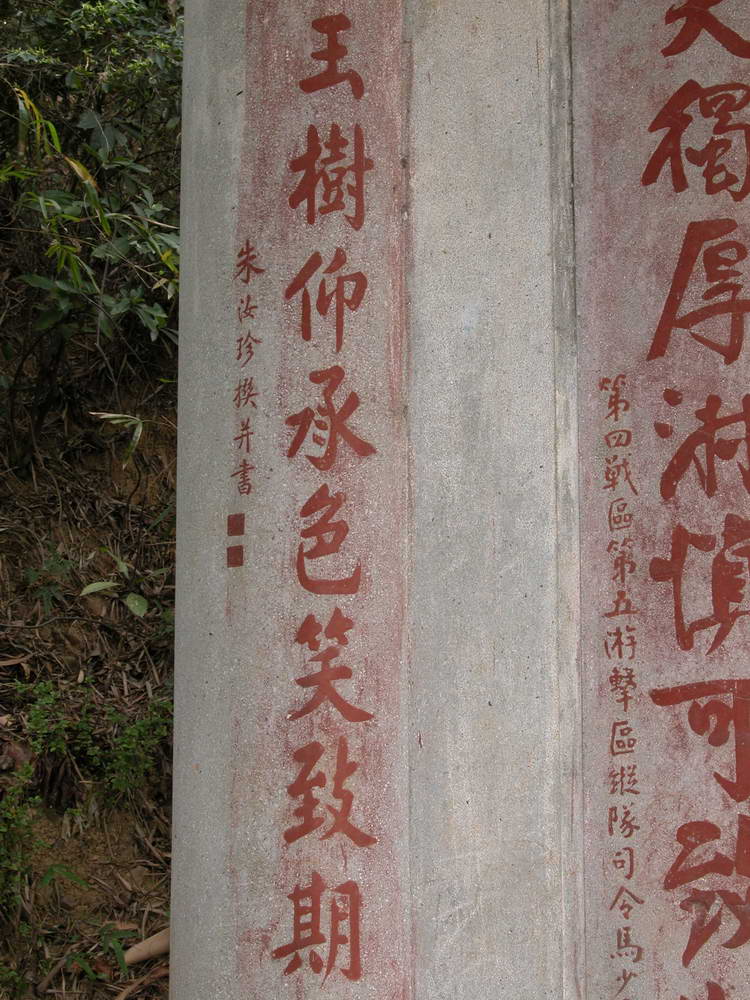 天獨厚淑慎可
第四戰區第五游擊區縱隊司令馬少
玉樹仰承色笑致期
朱汝珍撰并書